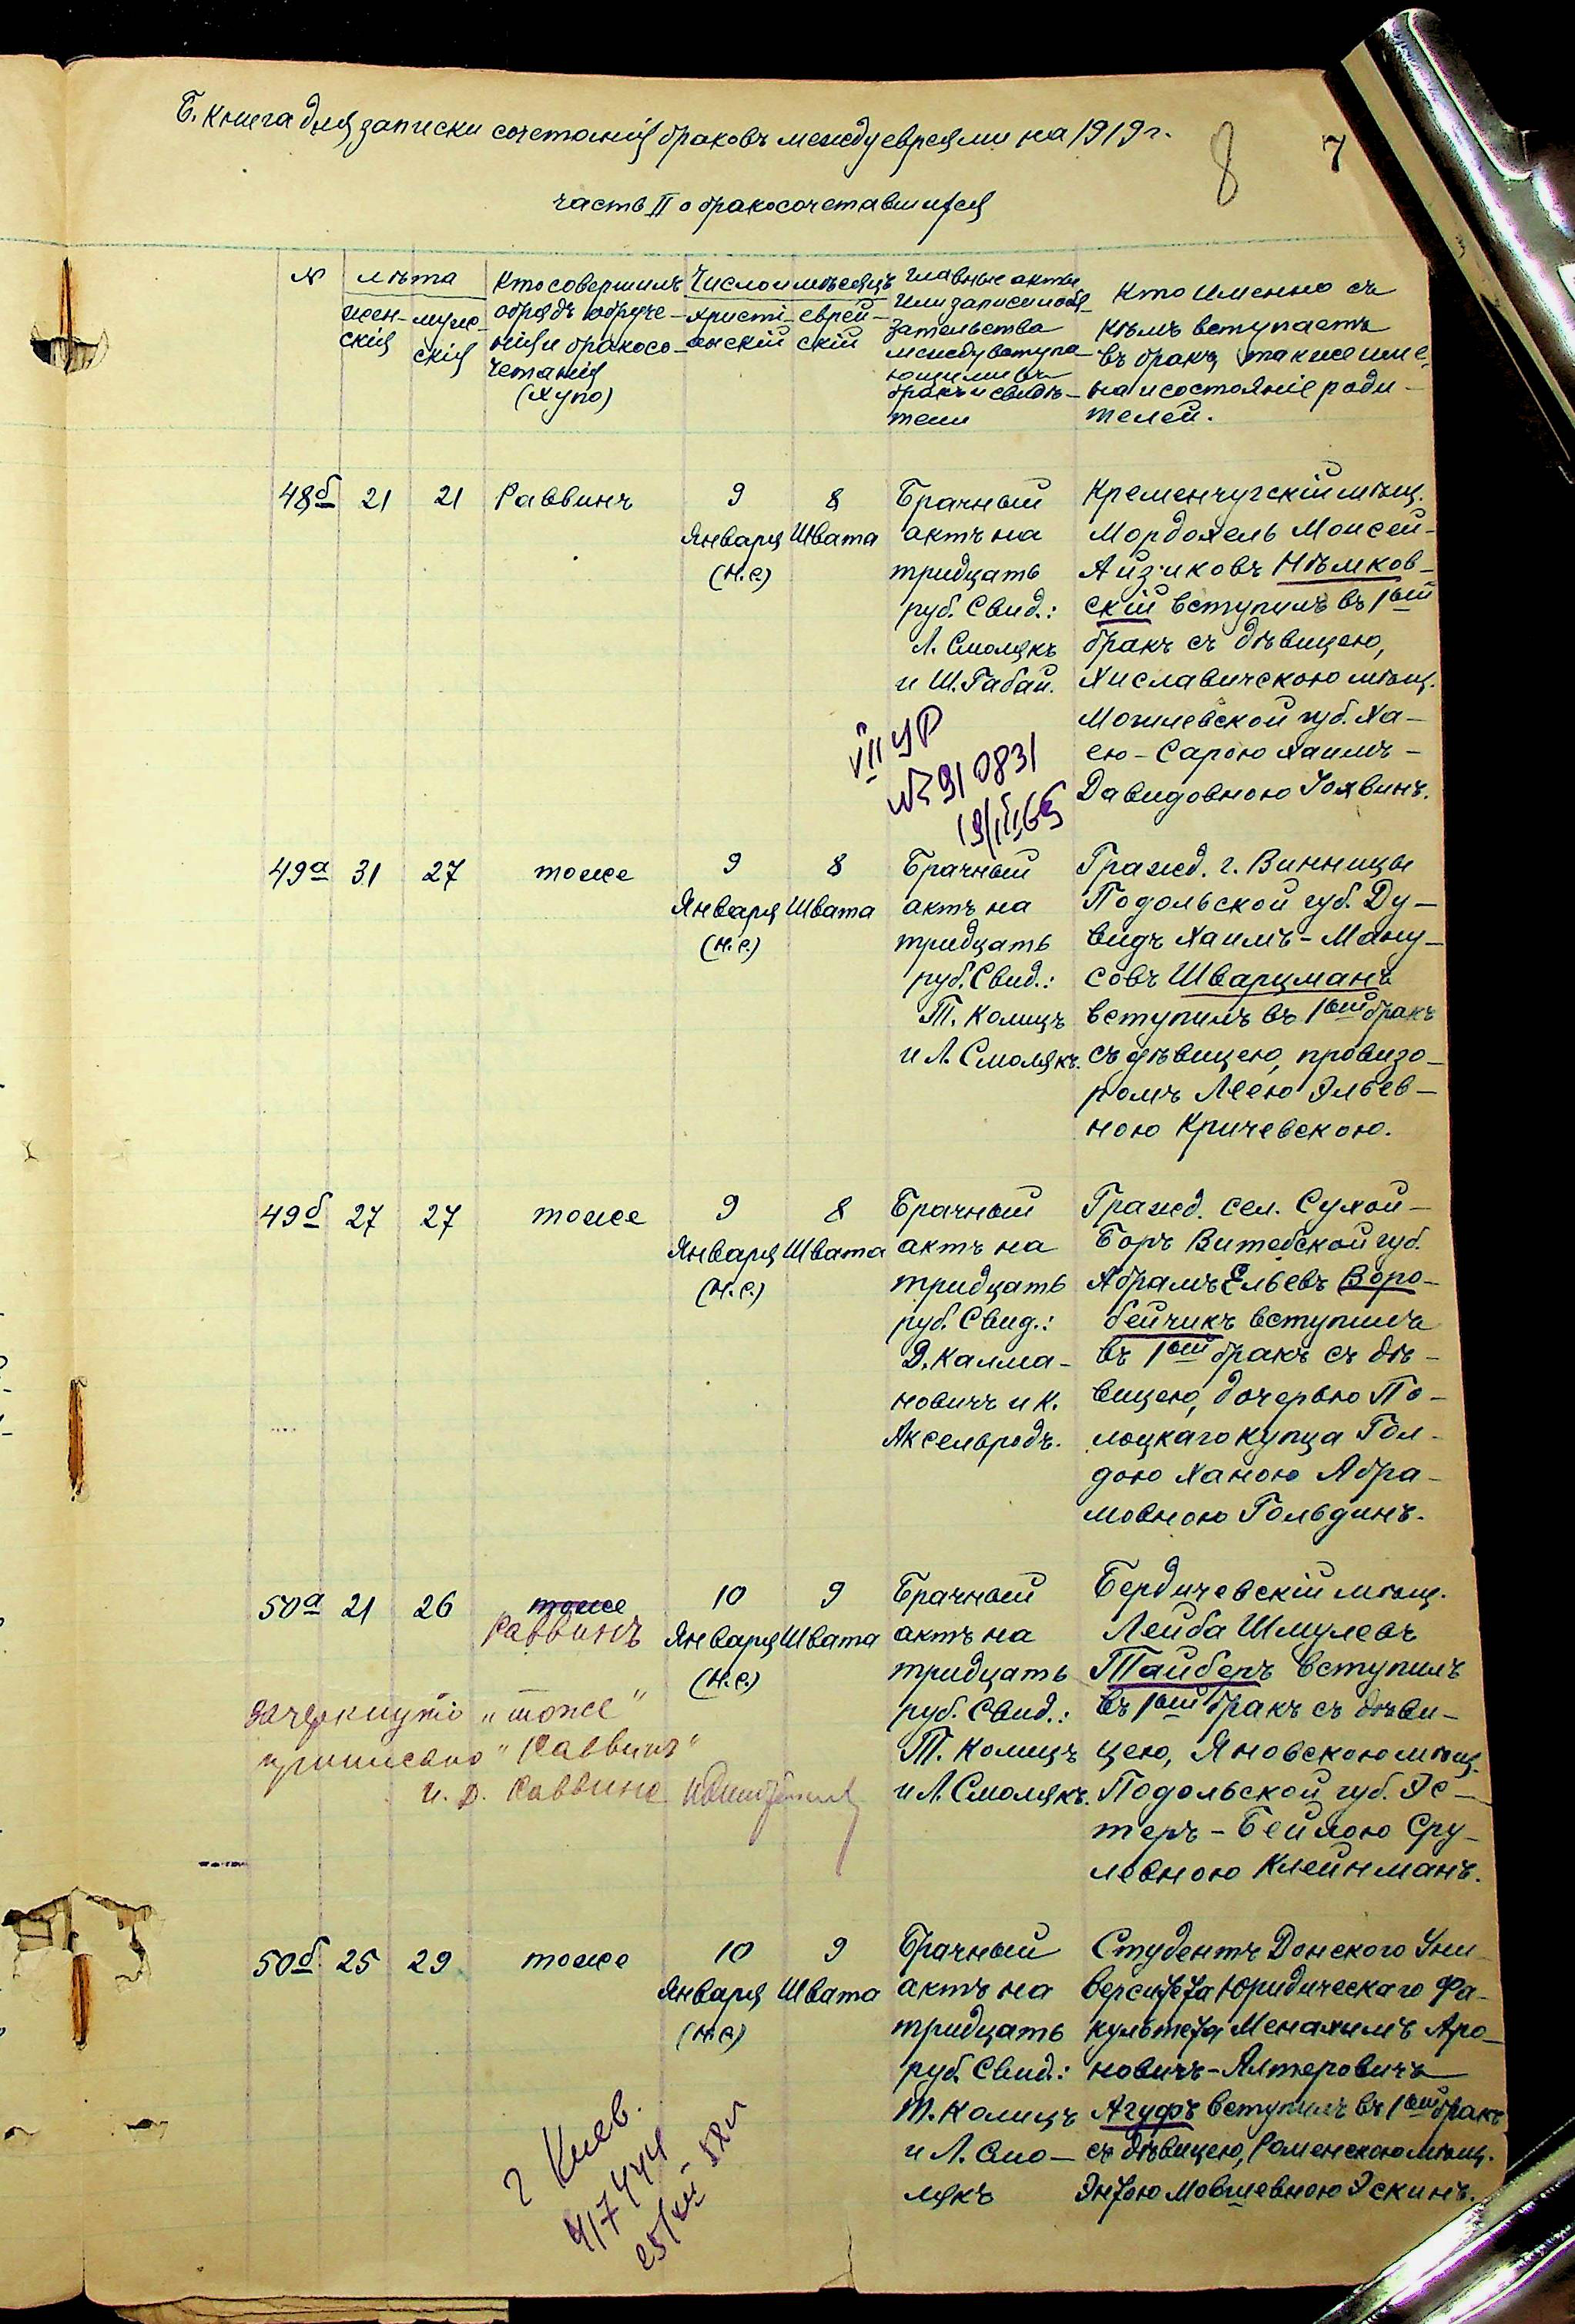 Б. Книга для записки сочетанія браковъ между евреями на 1919 г.
8 7
часть II о бракосочетавшихся
№
лѣта
жен-
скія
муж-
скія
Кто совершилъ
обрядъ обруче-
нія и бракосо-
четанія
(Хупо)
Число и мѣсяцъ
христі-
анскій
еврей-
скій
Главные акты
или записи обя-
зательства
между вступа-
ющими въ
бракъ и свидѣ-
тели
Кто именно съ
кѣмъ вступаетъ
въ бракъ, также име-
на и состояніе роди-
телей.
48б 21 21 Раввинъ
9
Января
(н.с.)
8
Швата
Брачный
актъ на
тридцать
руб. Свид.:
Л. Смолякъ
и Ш. Габай.
Кременчугскій мѣщ.
Мордохель Моисей-
Айзиковъ Нѣмков-
скій вступилъ въ 1ый
бракъ съ дѣвицею,
Хиславичскою мѣщ.
Могилевской губ. Ха-
ею-Сарою Хаимъ-
Давидовною Іохвинъ.
VII УР
№ 910831
19/III,65
49а 31 27 тоже
9
Января
(н.с.)
8
Швата
Брачный
актъ на
тридцать
руб. Свид.:
Т. Колицъ
и Л. Смолякъ.
Гражд. г. Винницы
Подольской губ. Ду-
видъ Хаимъ-Ману-
совъ Шварцманъ
вступилъ въ 1ый бракъ
съ дѣвицею, провизо-
ромъ Леею Эльев-
ною Кричевскою.
49б 27 27 тоже
9
Января
(н.с.)
8
Швата
Брачный
актъ на
тридцать
руб. Свид.:
Д. Калма-
новичъ и К.
Аксельродъ.
Гражд. сел. Сухой-
Боръ Витебской губ.
Абрамъ Ельевъ Воро-
бейчикъ вступилъ
въ 1ый бракъ съ дѣ-
вицею, дочерью По-
лоцкаго купца Гол-
дою Ханою Абра-
мовною Гольдинъ.
50а 21 26 тоже
Раввинъ
10
Января
(н.с.)
9
Швата
Брачный
актъ на
тридцать
руб. Свид.:
Т. Колицъ
и Л. Смолякъ.
Бердичевскій мѣщ.
Лейба Шмулевъ
Тайберъ вступилъ
въ 1ый бракъ съ дѣви-
цею, Яновскою мѣщ.
Подольской губ. Эс-
теръ-Бейлою Сру-
левною Клейнманъ.
Зачеркнуто „тоже“
приписано „Раввинъ“
и. д. Раввина
50б 25 29 тоже
10
Января
(н.с)
9
Швата
Брачный
актъ на
тридцать
руб. Свид.:
Т. Колицъ
и Л. Смо-
лякъ
Студентъ Донского Уни-
верситета Юридическаго Фа-
культета Менахимъ Аро-
новичъ-Алтеровичъ
Агуфъ вступилъ въ 1ый бракъ
съ дѣвицею, Роменскою мѣщ.
Энтою Мовшевною Эскинъ.
г Киев.
417444
25/XII-58г